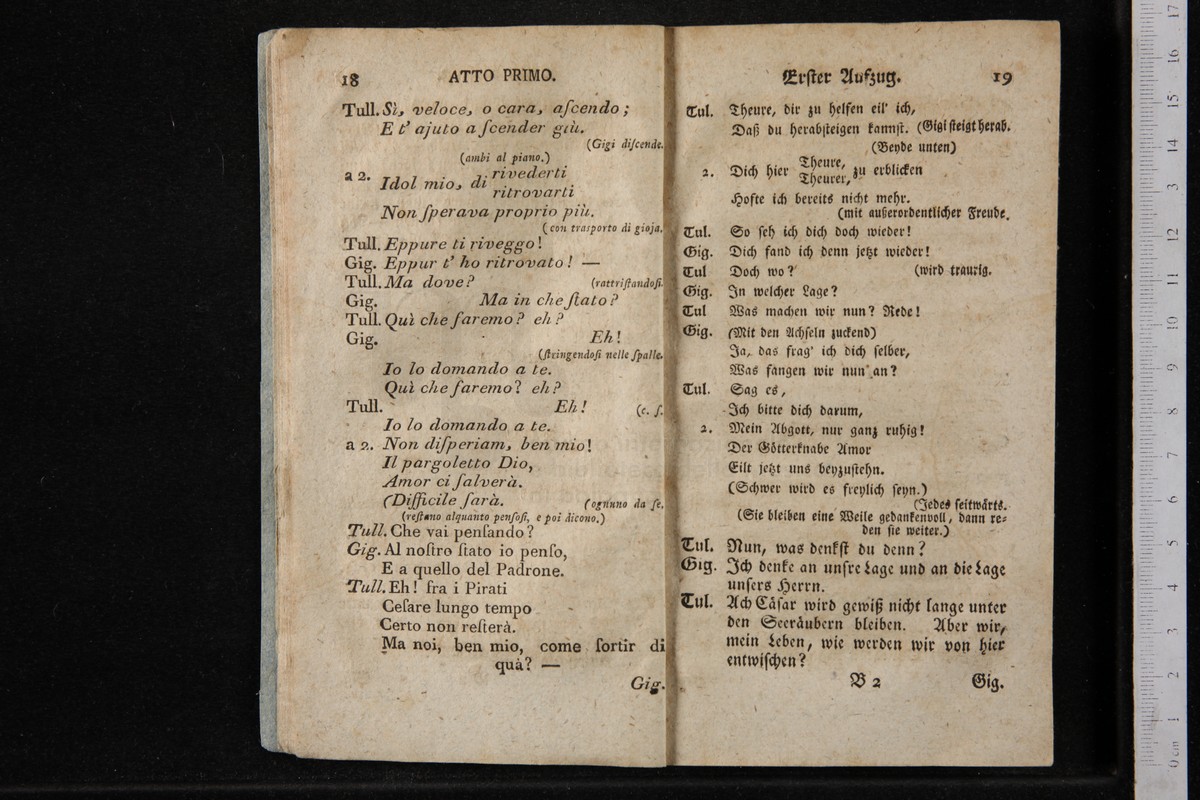 18 ATTO PRIMO.
Tull. Sì, veloce, o cara, aſcendo;
E t' ajuto a ſcender giù.
(Gigi diſcende.
(ambi al piano.)
a 2. Idol mio, di rivederti
ritrovarti
Non ſperava proprio più.
(con trasporto di gioja.
Tull. Eppure ti riveggo!
Gig. Eppur t' ho ritrovato! —
Tull. Ma dove? (rattriſtandoſi.
Gig. Ma in che ſtato?
Tull. Quì che faremo? eh?
Gig. Eh!
(ſtringendoſi nelle ſpalle.
Io lo domando a te.
Quì che faremo? eh?
Tull. Eh! (c. ſ.
Io lo domando a te.
a 2. Non diſperiam, ben mio!
Il pargoletto Dio,
Amor ci ſalverà.
(Difficile ſarà. (ognuno da ſe.
(reſtano alquanto penſoſi, e poi dicono.)
Tull. Che vai penſando?
Gig. Al noſtro ſtato io penſo,
E a quello del Padrone.
Tull. Eh! fra i Pirati
Ceſare lungo tempo
Certo non reſterà.
Ma noi, ben mio, come ſortir di
quà? —
Gig.
Erſter Aufzug. 19
Tul. Theure, dir zu helfen eil' ich,
Daß du herabſteigen kannſt. (Gigi ſteigt herab.
(Beyde unten)
2. Dich hier Theure, zu erblicken
Theurer,
Hofte ich bereits nicht mehr.
(mit außerordentlicher Freude.
Tul. So ſeh ich dich doch wieder!
Gig. Dich fand ich denn jetzt wieder!
Tul Doch wo? (wird traurig.
Gig. In welcher Lage?
Tul Was machen wir nun? Rede!
Gig. (Mit den Achſeln zuckend)
Ja, das frag' ich dich ſelber,
Was fangen wir nun an?
Tul. Sag es,
Ich bitte dich darum,
2. Mein Abgott, nur ganz ruhig!
Der Götterknabe Amor
Eilt jetzt uns beyzuſtehn.
(Schwer wird es freylich ſeyn.)
(Jedes ſeitwärts.
(Sie bleiben eine Weile gedankenvoll, dann re-
den ſie weiter.)
Tul. Nun, was denkſt du denn?
Gig. Ich denke an unſre Lage und an die Lage
unſers Herrn.
Tul. Ach Cäſar wird gewiß nicht lange unter
den Seeräubern bleiben. Aber wir,
mein Leben, wie werden wir von hier
entwiſchen?
B 2 Gig.
0 cm 1 2 3 4 5 6 7 8 9 10 11 12 13 14 15 16 17